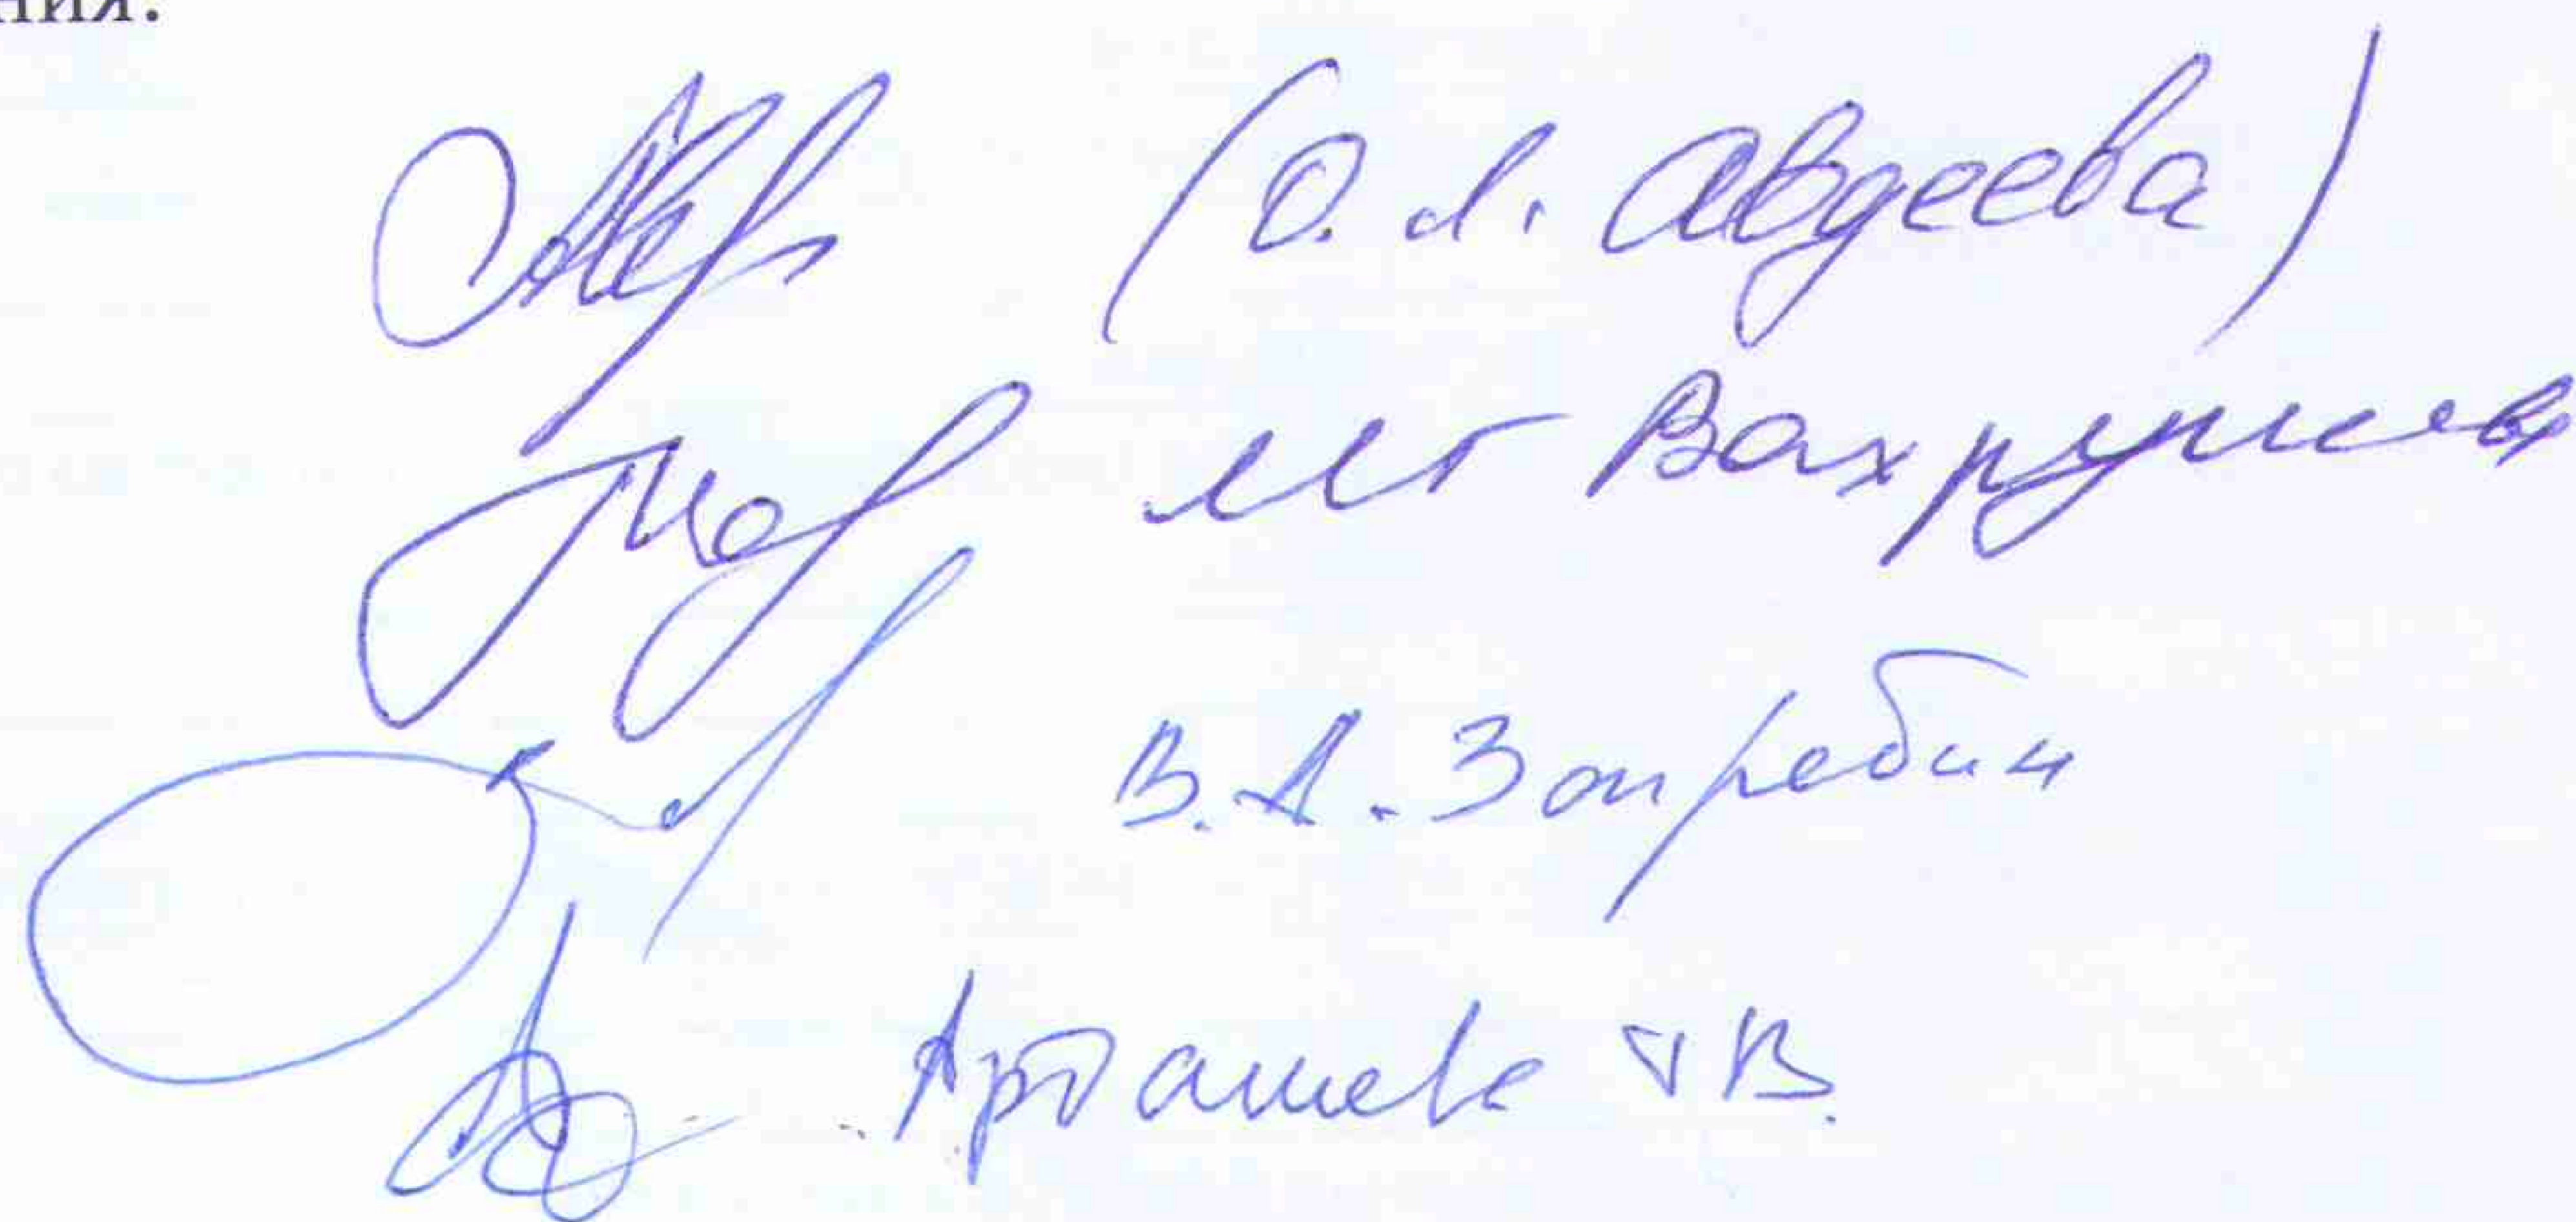 ния.
(О. Л. Авдеева)
Вахрушев
В. А. Загребин
Арташева В.